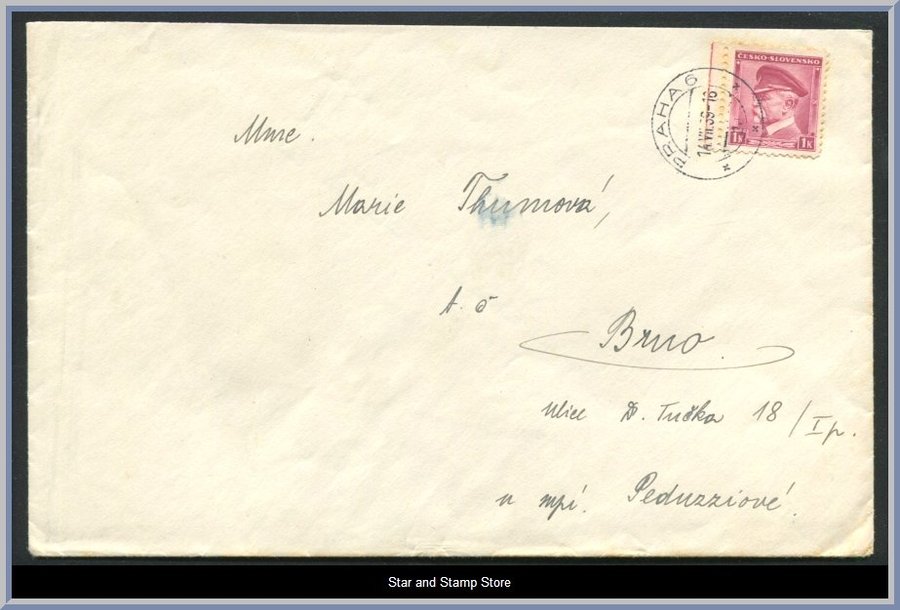 ČESKO-SLOVENSKO
1K 1K
PRAHA 6
Mme.
Marie Thumová,
Brno.
ulice D. Tučka 18/I p.
u mpí. Peduzziové.
Star and Stamp Store